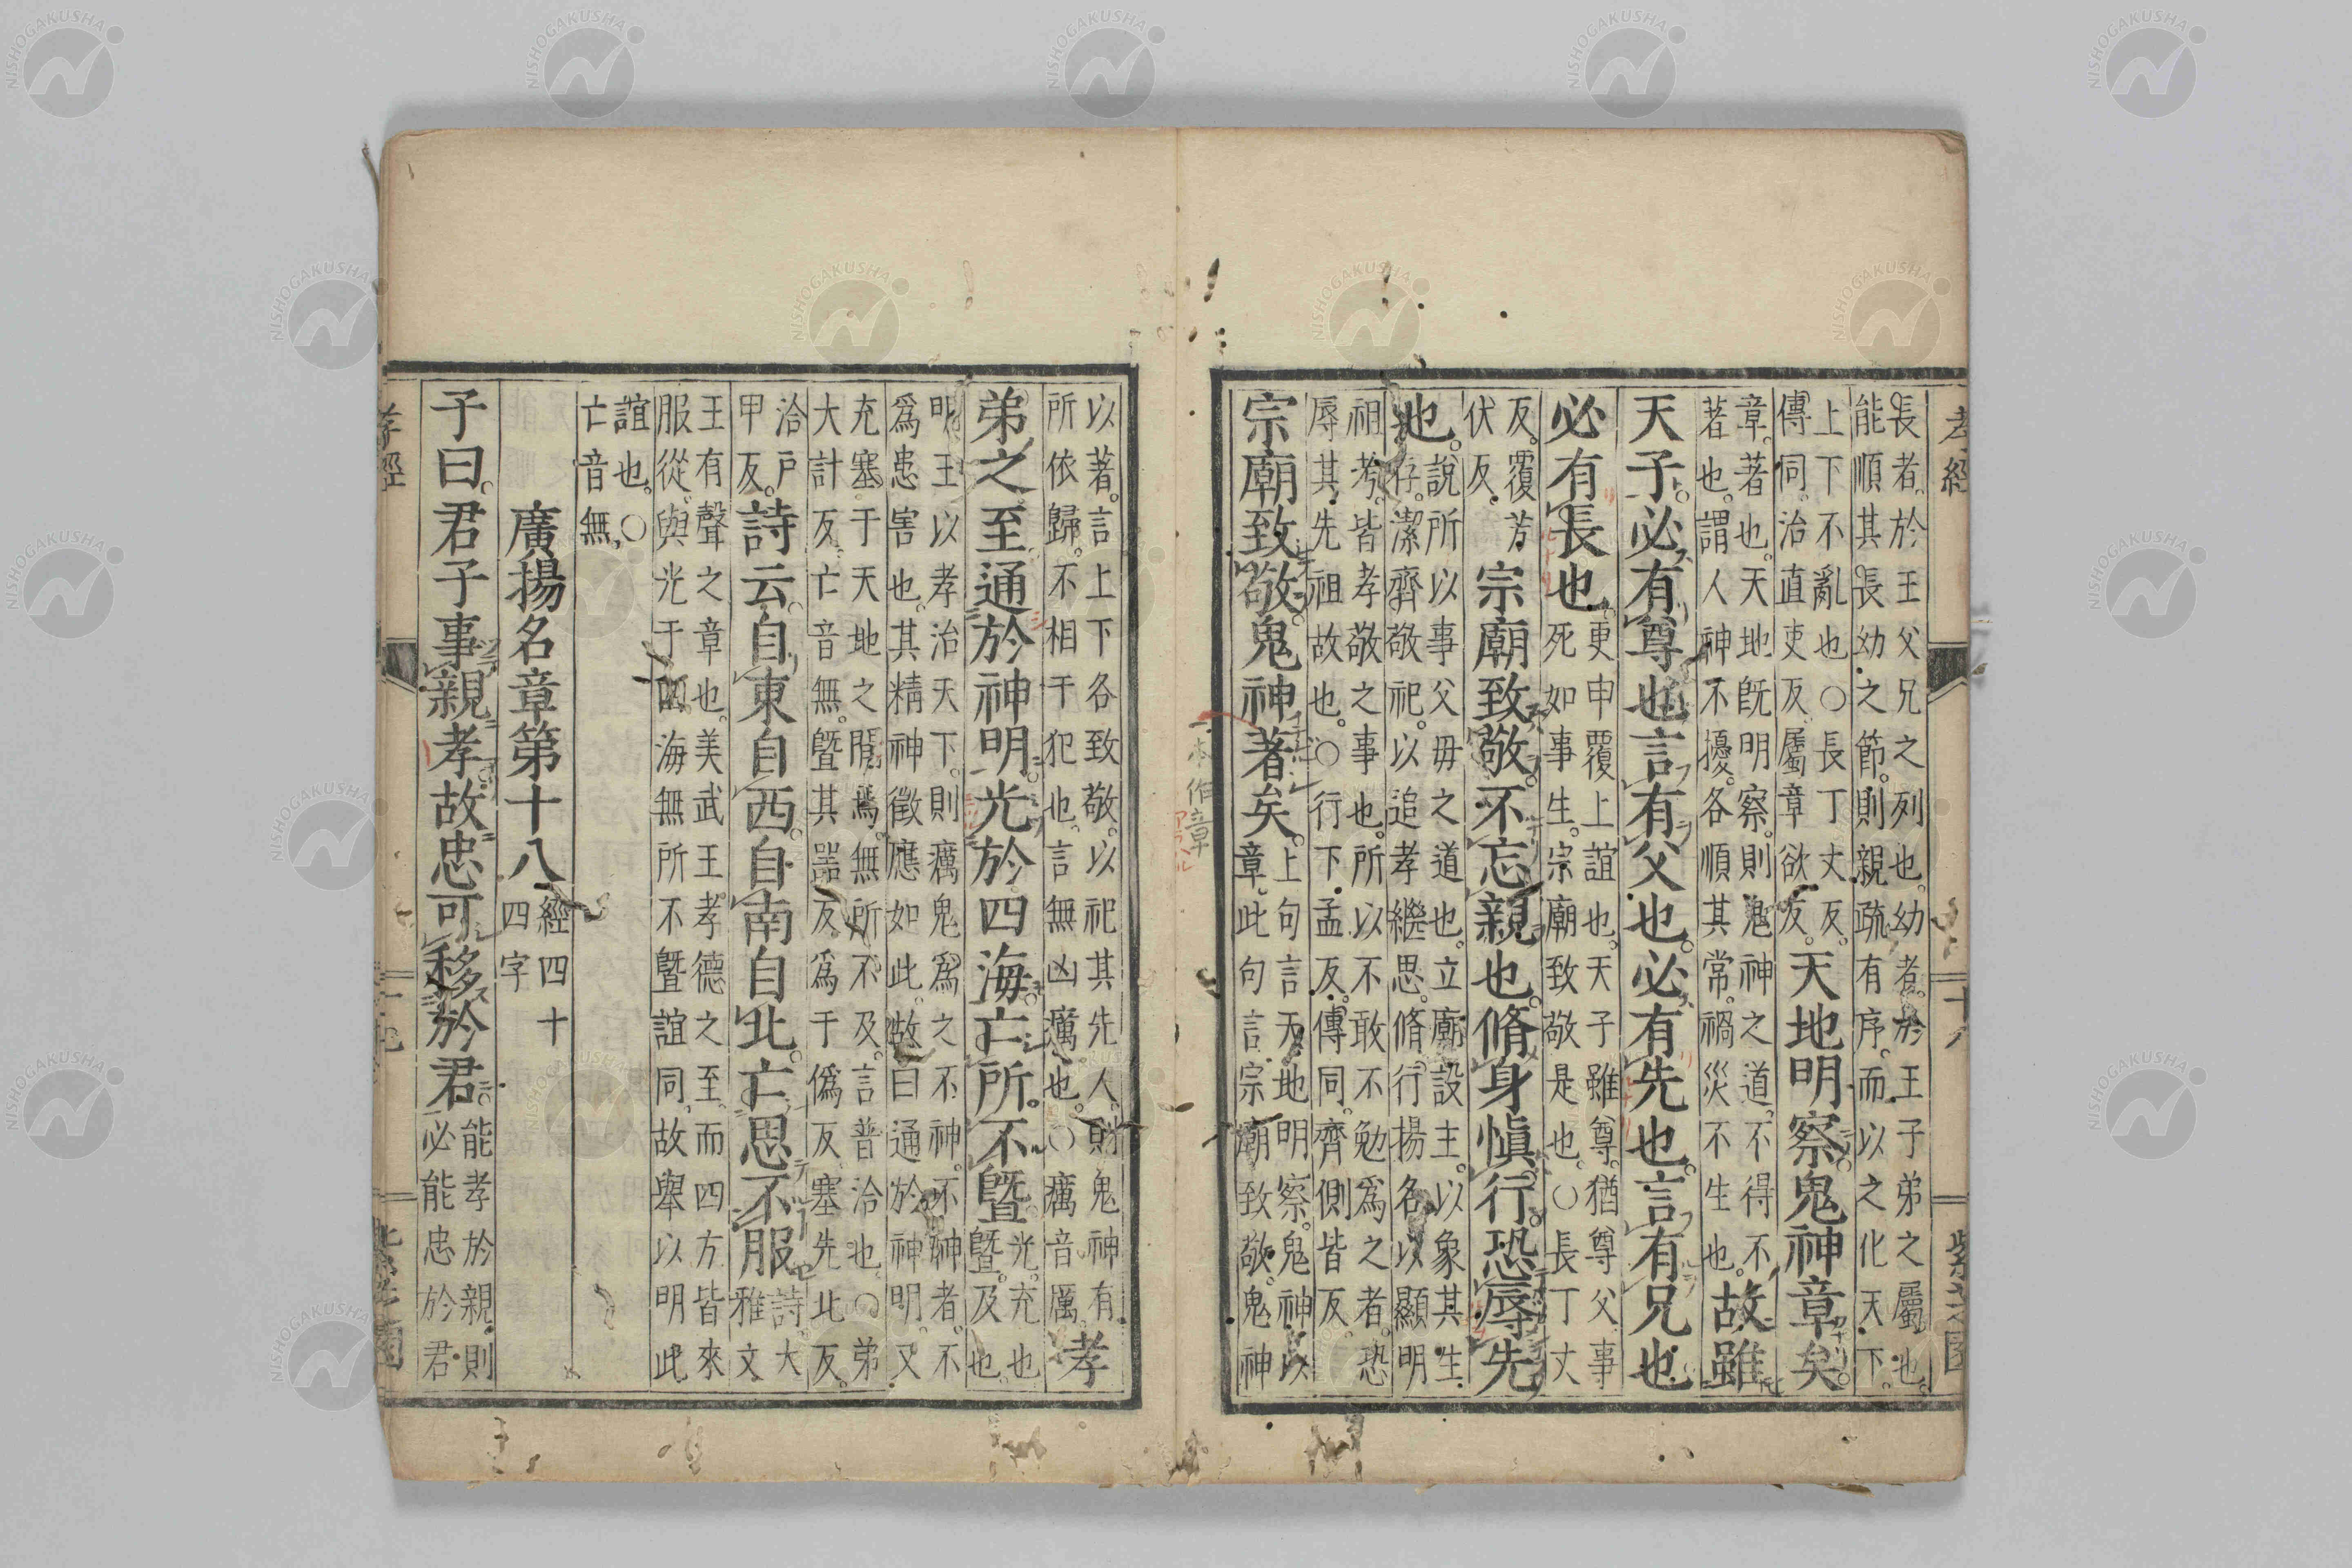 孝經
十八
紫芝園
長者於王父兄之列也幼者於王子弟之屬也
能順其長幼之節則親疏有序而以之化天下
上下不亂也○長丁丈反
傳同治直吏反屬章欲反天地明察鬼神章矣
章著也天地既明察則鬼神之道不得不
著也謂人神不擾各順其常禍災不生也故雖
天子必有尊也言有父也必有先也言有兄也
必有長也更申覆上誼也天子雖尊猶尊父事
死如事生宗廟致敬是也○長丁丈
反覆芳
伏反宗廟致敬不忘親也脩身愼行恐辱先
也說所以事父母之道也立廟設主以象其生
存潔齊敬祀以追孝繼思脩行揚名以顯明
祖考皆孝敬之事也所以不敢不勉爲之者恐
辱其先祖故也○行下孟反傳同齊側皆反
宗廟致敬鬼神著矣上句言天地明察鬼神以
章此句言宗廟致敬鬼神
一本作章
アラハル
以著言上下各致敬以祀其先人則鬼神有
所依歸不相干犯也言無凶癘也○癘音厲孝
弟之至通於神明光於四海亡所不曁光充也
曁及也
明王以孝治天下則癘鬼爲之不神不神者不
爲患害也其精神徵應如此故曰通於神明又
充塞于天地之閒焉無所不及言普洽也○弟
大計反亡音無曁其器反爲于僞反塞先北反
洽戶
甲反詩云自東自西自南自北亡思不服詩大
雅文
王有聲之章也美武王孝德之至而四方皆來
服從與光于四海無所不曁誼同故舉以明此
誼也○
亡音無
廣揚名章第十八經四十
四字
子曰君子事親孝故忠可移於君能孝於親則
必能忠於君
孝經